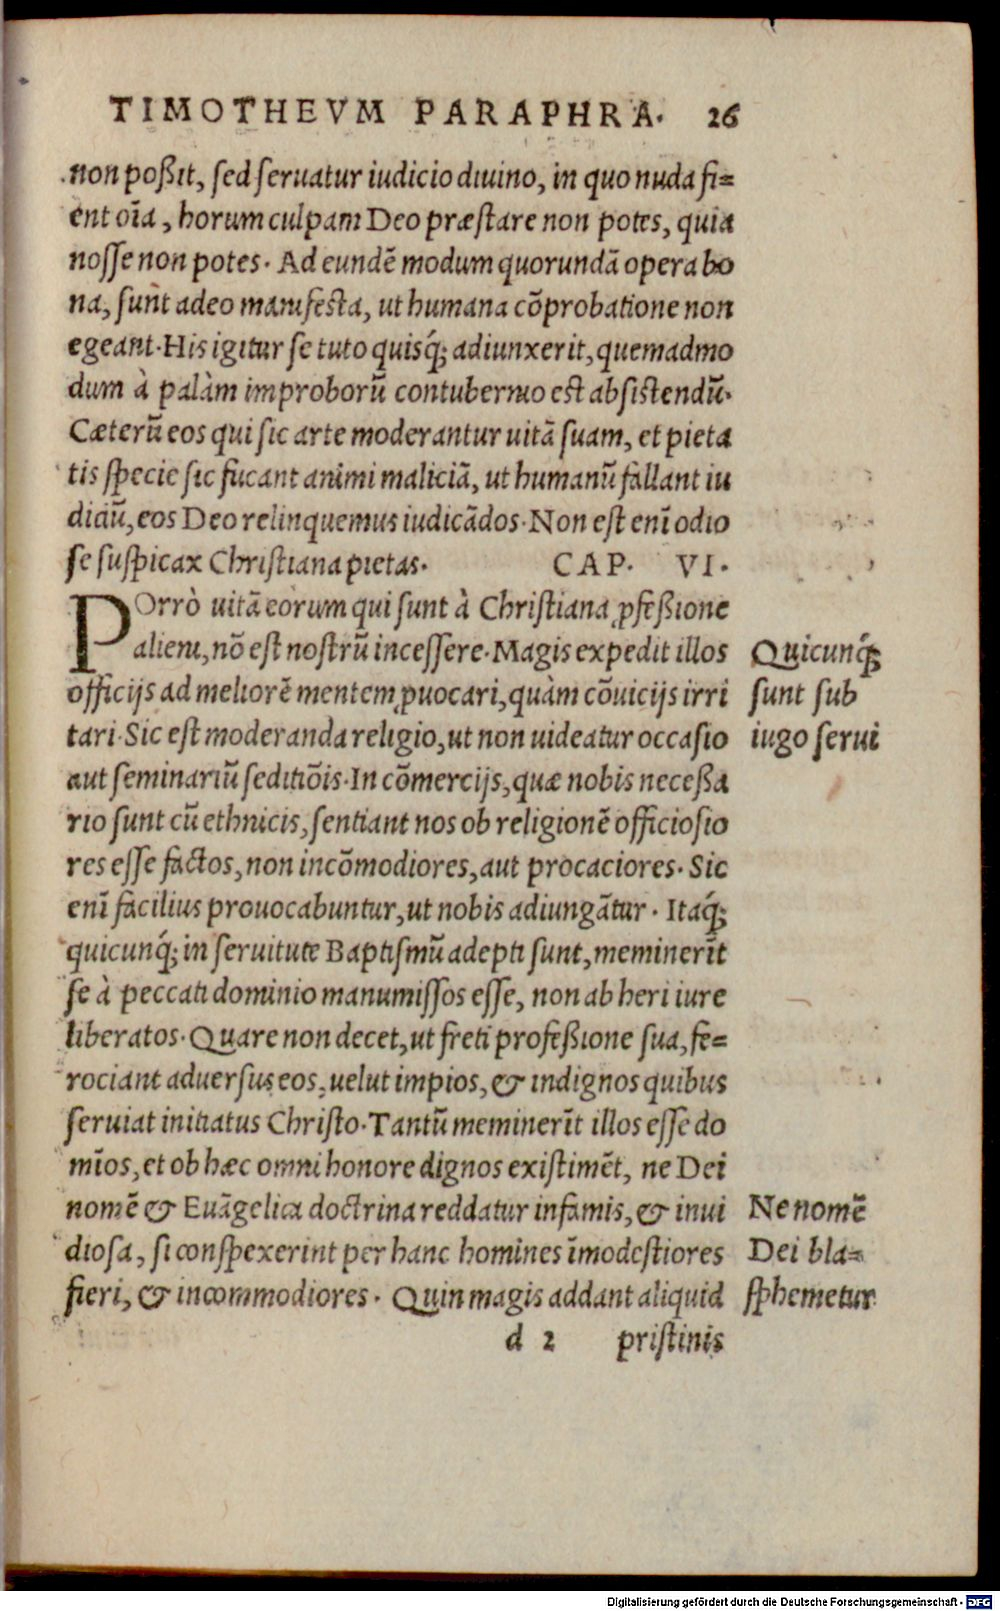 TIMOTHEVM PARAPHRA. 26
non poßit, sed seruatur iudicio diuino, in quo nuda fi=
ent oīa, horum culpam Deo præstare non potes, quia
nosse non potes. Ad eundē modum quorundā opera bo
na, sunt adeo manifesta, ut humana cōprobatione non
egeant. His igitur se tuto quisq́; adiunxerit, quemadmo
dum à palàm improborū contubernio est absistendū.
Cæterū eos qui sic arte moderantur uitā suam, et pieta
tis specie sic fucant animi maliciā, ut humanū fallant iu
diciū, eos Deo relinquemus iudicādos. Non est enī odio
se suspicax Christiana pietas. CAP. VI.
POrrò uitā eorum qui sunt à Christiana ꝓfeßione
alieni, nō est nostrū incessere. Magis expedit illos
officijs ad meliorē mentem ꝓuocari, quàm cōuicijs irri
tari. Sic est moderanda religio, ut non uideatur occasio
aut seminariū seditiōis. In cōmercijs, quæ nobis neceßa
rio sunt cū ethnicis, sentiant nos ob religionē officiosio
res esse factos, non incōmodiores, aut procaciores. Sic
enī facilius prouocabuntur, ut nobis adiungātur. Itaq́;
quicunq́; in seruitute Baptismū adepti sunt, meminerīt
se à peccati dominio manumissos esse, non ab heri iure
liberatos. Quare non decet, ut freti profeßione sua, fe=
rociant aduersus eos, uelut impios, & indignos quibus
seruiat initiatus Christo. Tantū meminerīt illos esse do
mīos, et ob hæc omni honore dignos existimēt, ne Dei
nomē & Euāgelica doctrina reddatur infamis, & inui
diosa, si conspexerint per hanc homines īmodestiores
fieri, & incommodiores. Quin magis addant aliquid
d 2 pristinis
Quicunq́;
sunt sub
iugo serui
Ne nomē
Dei bla=
sphemetur
Digitalisierung gefördert durch die Deutsche Forschungsgemeinschaft - DFG